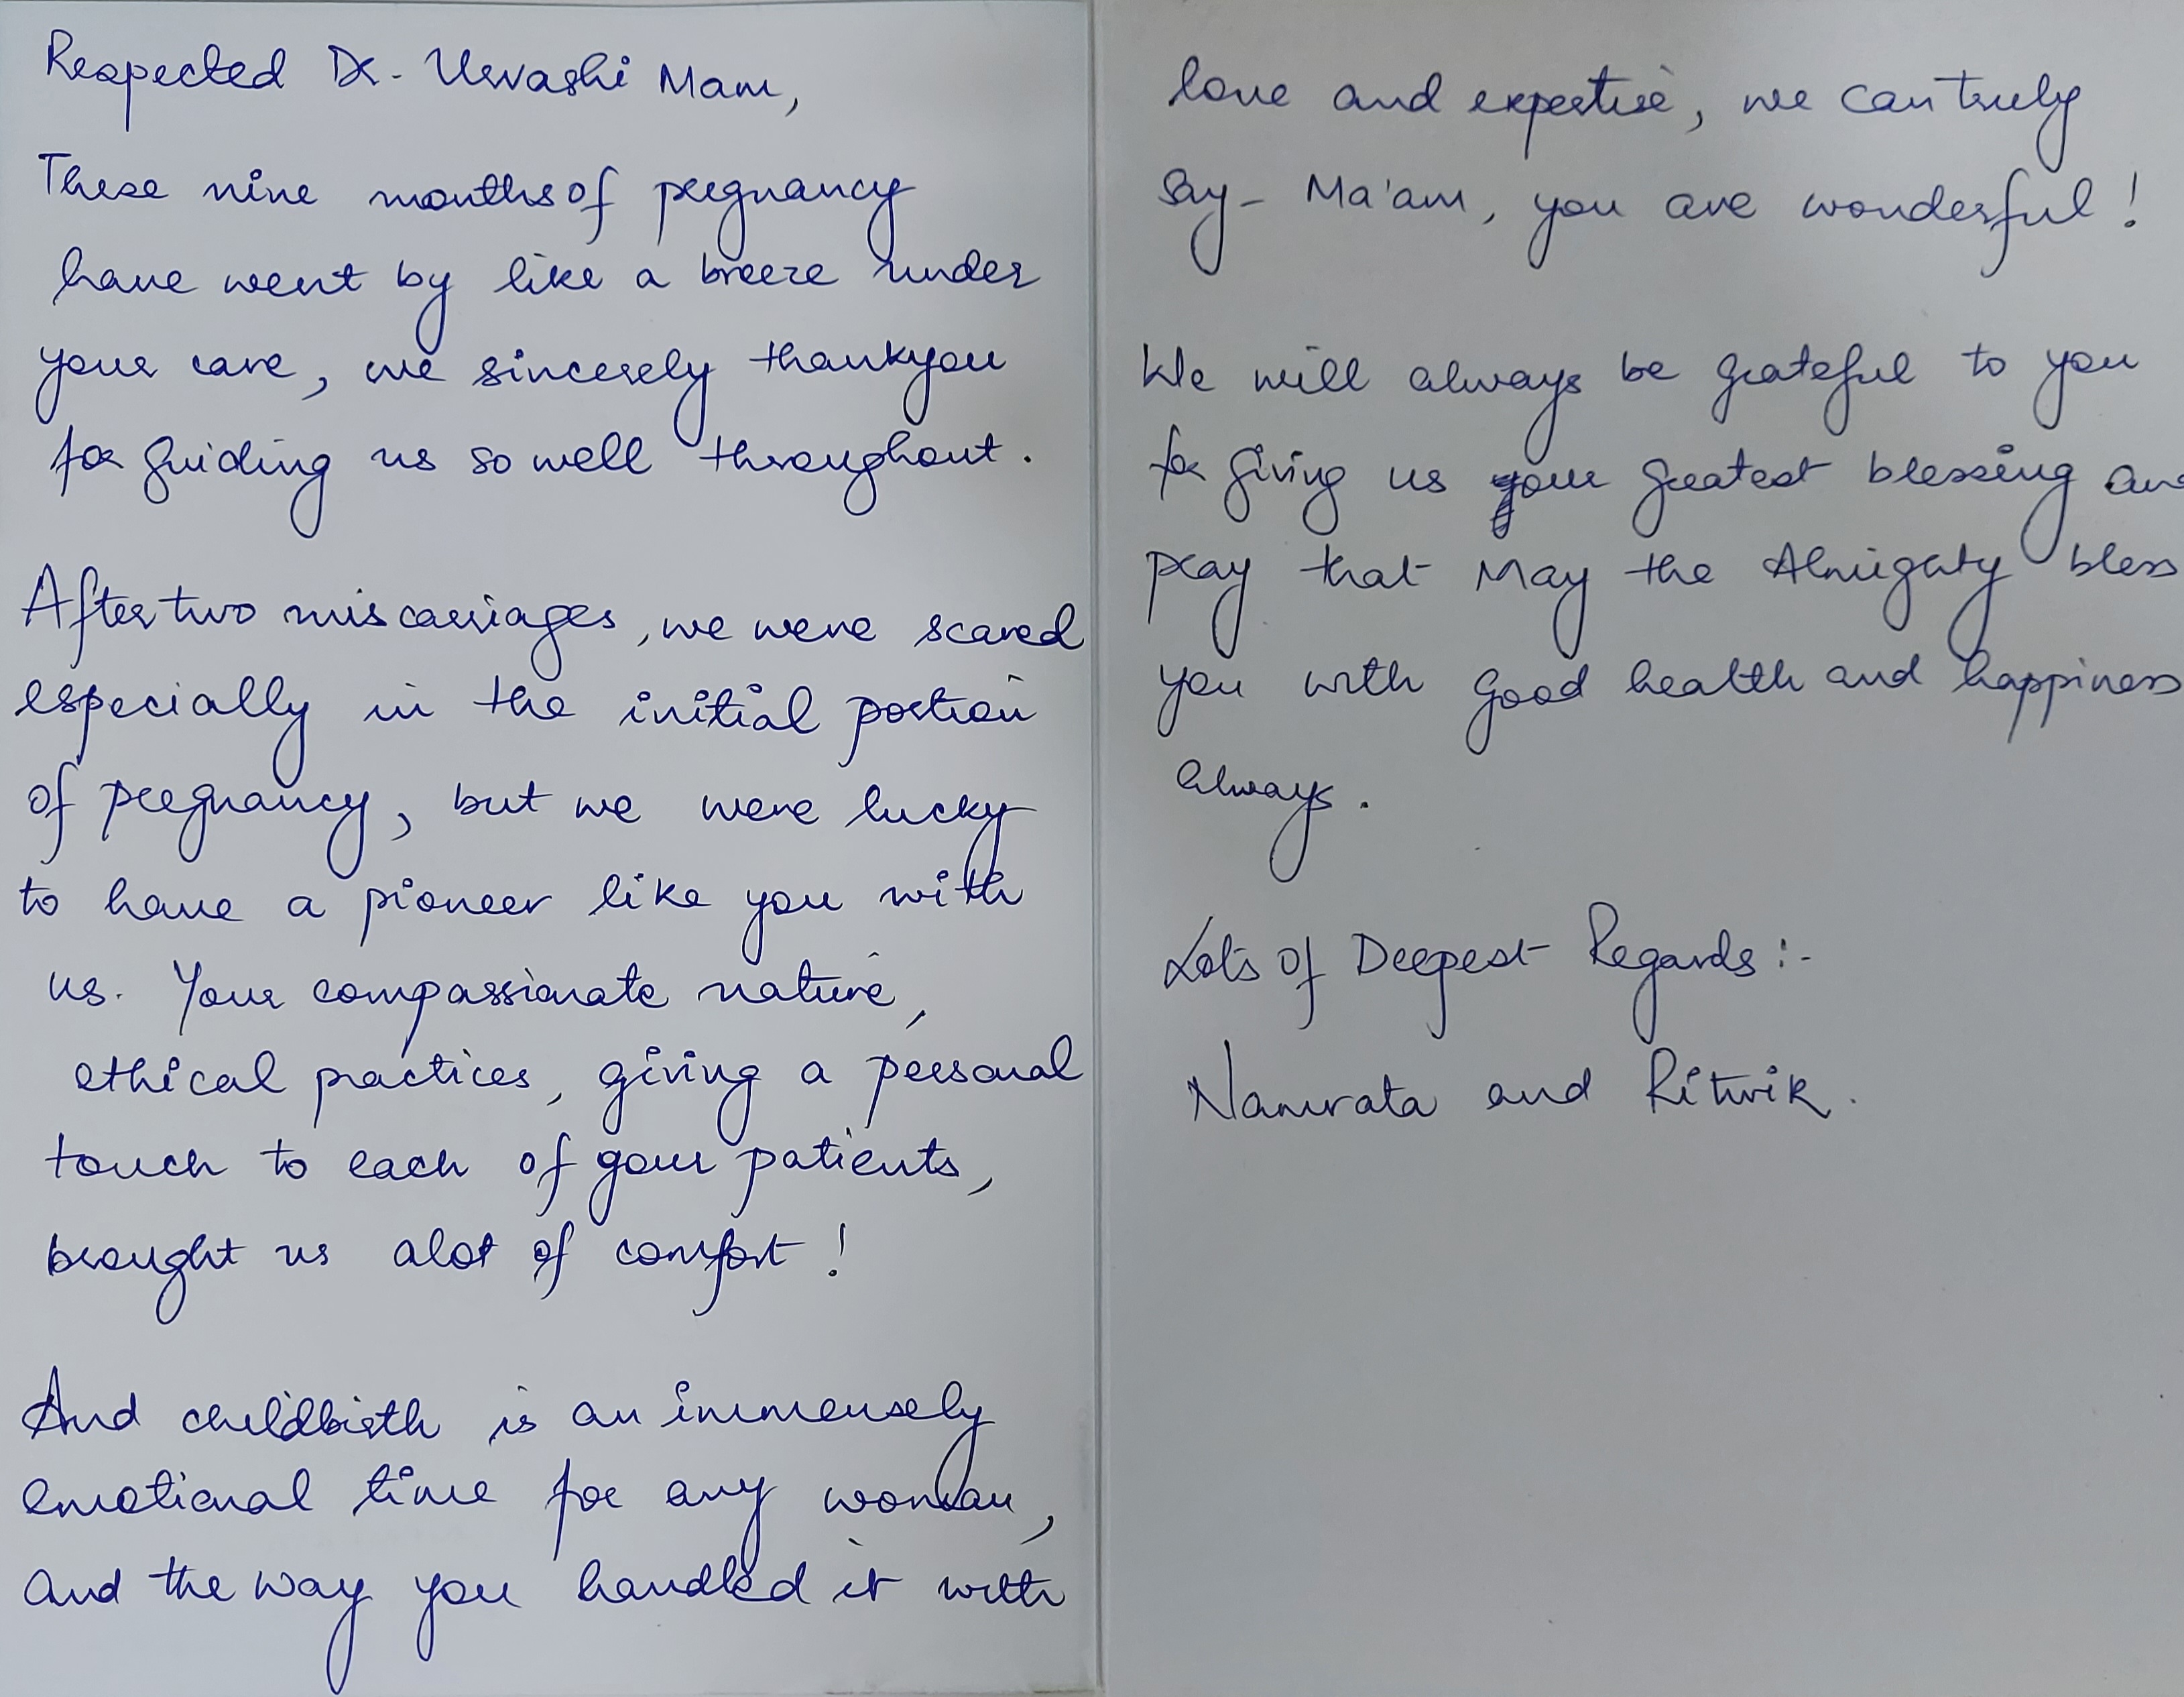 Respected Dr. Urvashi Mam,
These nine months of pregnancy
have went by like a breeze under
your care, we sincerely thankyou
for guiding us so well throughout.
After two miscarriages, we were scared
especially in the initial portion
of pregnancy, but we were lucky
to have a pioneer like you with
us. Your compassionate nature,
ethical practices, giving a personal
touch to each of your patients,
brought us alot of comfort!
And childbirth is an immensely
emotional time for any woman,
and the way you handled it with
love and expertise, we can truly
say - Ma'am, you are wonderful!
We will always be grateful to you
for giving us your greatest blessing and
pray that May the Almighty bless
you with good health and happiness
always.
Lots of Deepest Regards:-
Namrata and Ritwik.